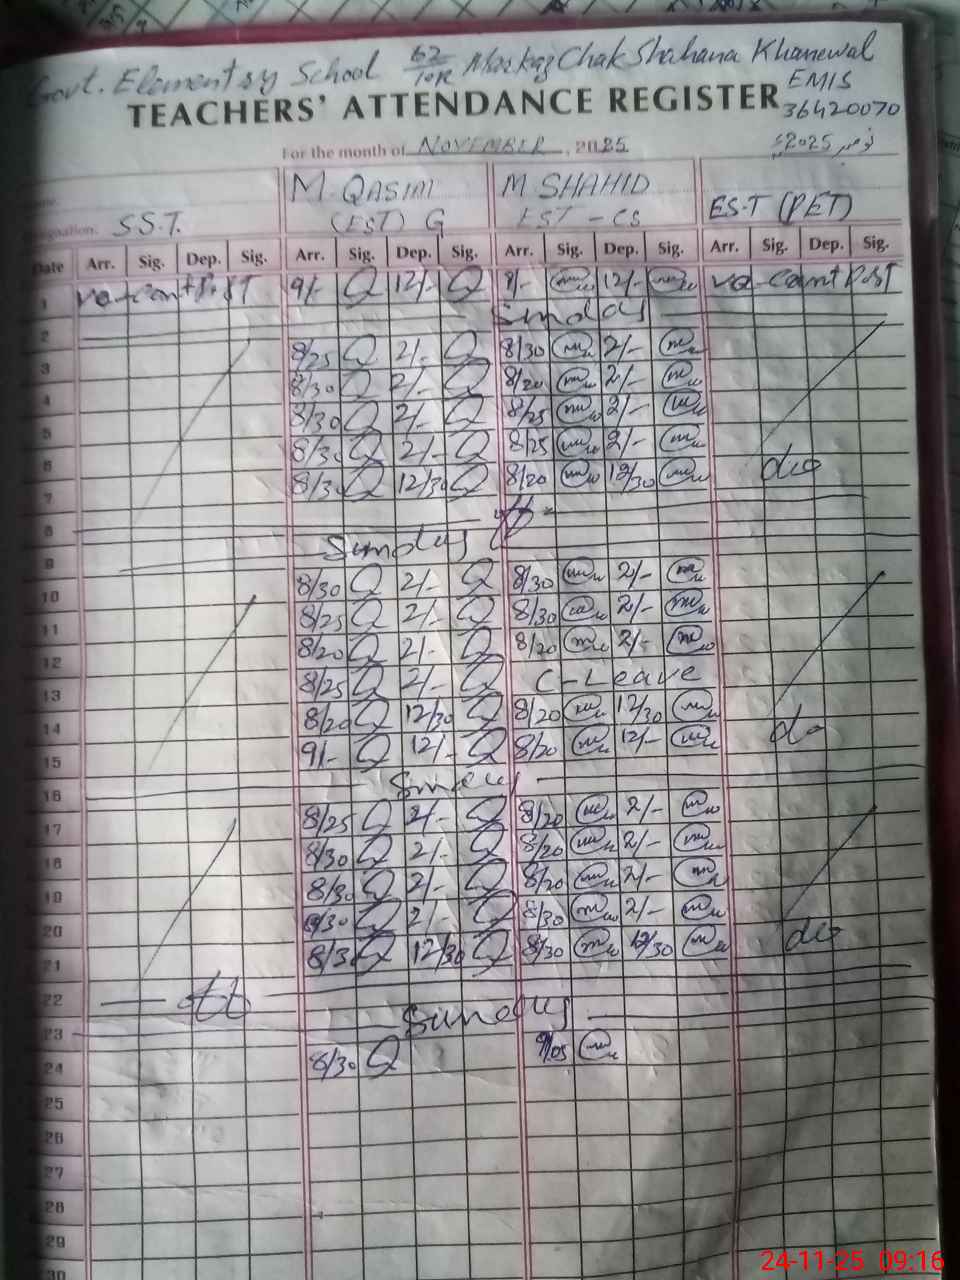 Govt. Elementry School 62/10R Markaz Chak Shahana Khanewal
EMIS
TEACHERS' ATTENDANCE REGISTER 36420070
For the month of NOVEMBER, 2025 نومبر 2025ء
M. QASIM M. SHAHID
Designation. S.S.T. (EST) G EST - CS ES.T (PET)
Date Arr. Sig. Dep. Sig. Arr. Sig. Dep. Sig. Arr. Sig. Dep. Sig. Arr. Sig. Dep. Sig.
1 va-cant Post 9/- Q 12/- Q 8/- 12/- va-cant Post
2 Sunday
3 8/25 Q 2/- Q 8/30 2/-
4 8/30 Q 2/- Q 8/20 2/-
5 8/30 Q 2/- Q 8/25 2/-
6 8/30 Q 2/- Q 8/25 2/-
7 8/30 Q 12/30 Q 8/20 12/30 do
8
9 Sunday
10 8/30 Q 2/- Q 8/30 2/-
11 8/25 Q 2/- Q 8/30 2/-
12 8/20 Q 2/- Q 8/20 2/-
13 8/25 Q 2/- Q C-Leave
14 8/20 Q 12/30 Q 8/20 12/30
15 9/- Q 12/- Q 8/20 12/- do
16 Sunday
17 8/25 Q 2/- Q 8/20 2/-
18 8/30 Q 2/- Q 8/20 2/-
19 8/30 Q 2/- Q 8/20 2/-
20 8/30 Q 2/- Q 8/30 2/-
21 8/30 Q 12/30 Q 8/30 12/30 do
22
23 Sunday
24 8/30 Q 9/05
25
26
27
28
29
30
24-11-25 09:16